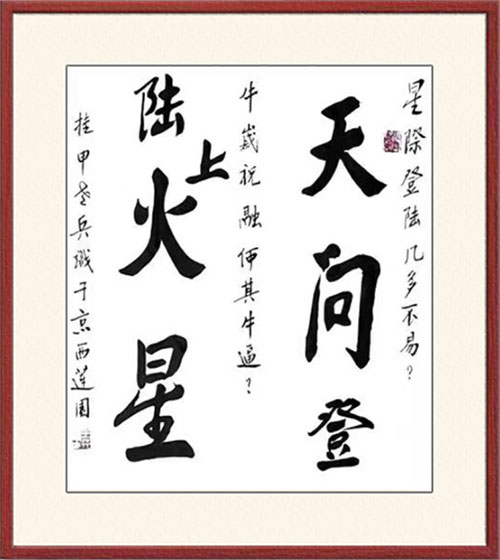 星際登陆几多不易?
天问登
牛歲祝融何其牛逼?
陆上火星
挂甲老兵戲于京西莲园